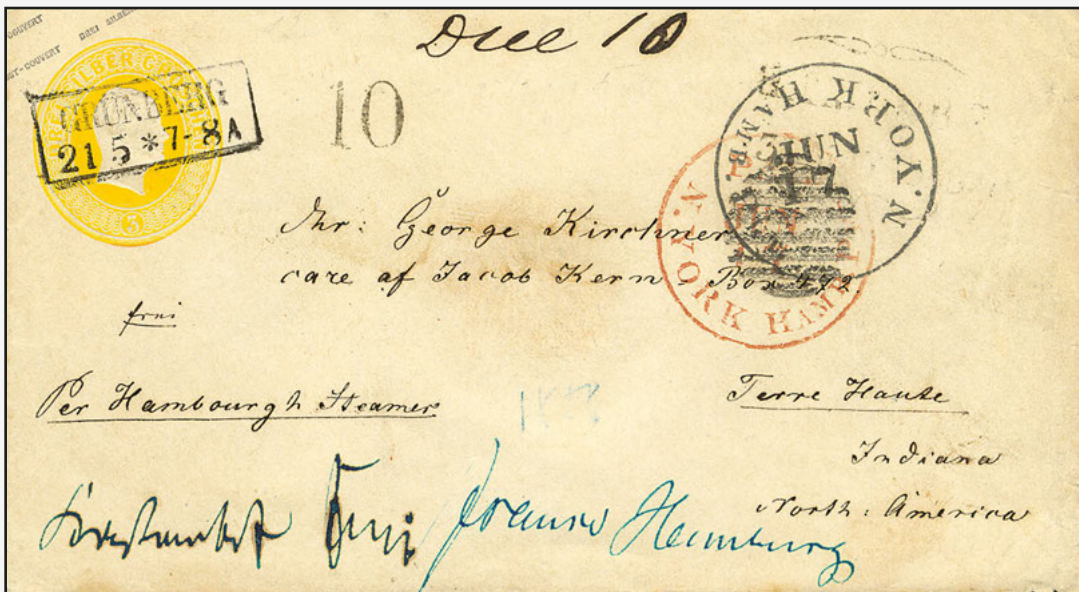 Due 10
DREI SILBERGROSCHEN
3
GRÜNBERG
21 5 * 7-8 A
10
N. YORK HAMB. PKT
JUN
17
N. YORK HAMB.
Mr: George Kirchner
care of Jacob Kern. Box 472
frei
Per Hambourgh Steamer
Terre Haute
Indiana
North: America
franco Hamburg